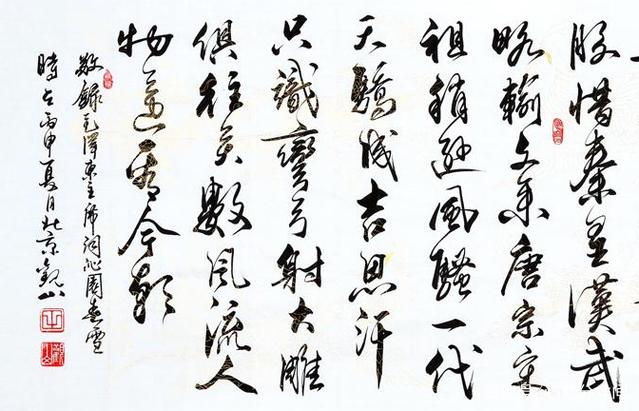 腰惜秦皇漢武
略輸文采唐宗宋
祖稍遜風騷一代
天驕成吉思汗
只識彎弓射大雕
俱往矣數風流人
物還看今朝
敬錄毛澤東主席詞沁園春雪
時在丙申夏日北京觀山